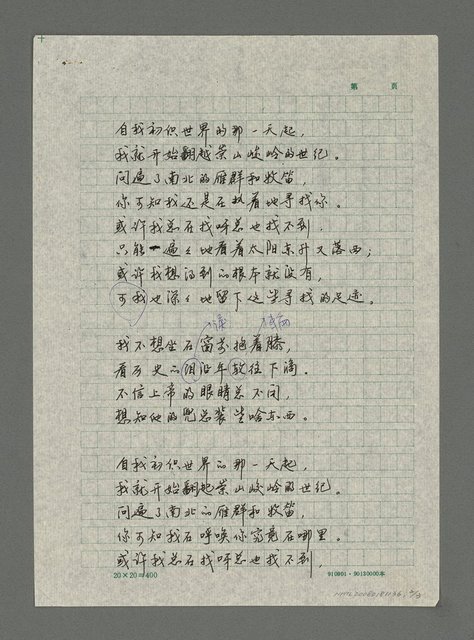 第　　页
自我初识世界的那一天起，
我就开始翻越崇山峻岭的世纪。
问遍了南北的雁群和牧笛，
你可知我还是在执着地寻找你。
或许我总在找呀总也找不到，
只能一遍々地看着太阳东升又落西；
或许我想得到的根本就没有，
可我也深々地留下这些寻找的足迹。
我不想坐在窗前抱着膝，
看历史的泪沿年轮往下滴。
不信上帝的眼睛总不闭，
想知他的兜总装些啥东西。
自我初识世界的那一天起，
我就开始翻越崇山峻岭的世纪。
问遍了南北的雁群和牧笛，
你可知我在呼唤你究竟在哪里。
或许我总在找呀总也找不到，
20×20=400
910901·90130000本